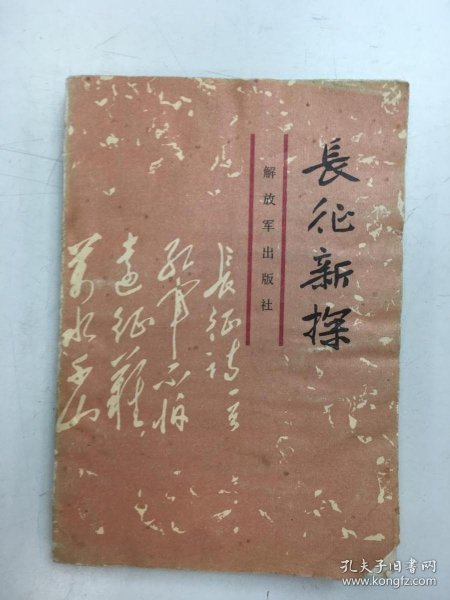 長征新探
解放军出版社
長征诗一首
红军不怕
远征难
万水千山
孔夫子旧书网
www.kongfz.com